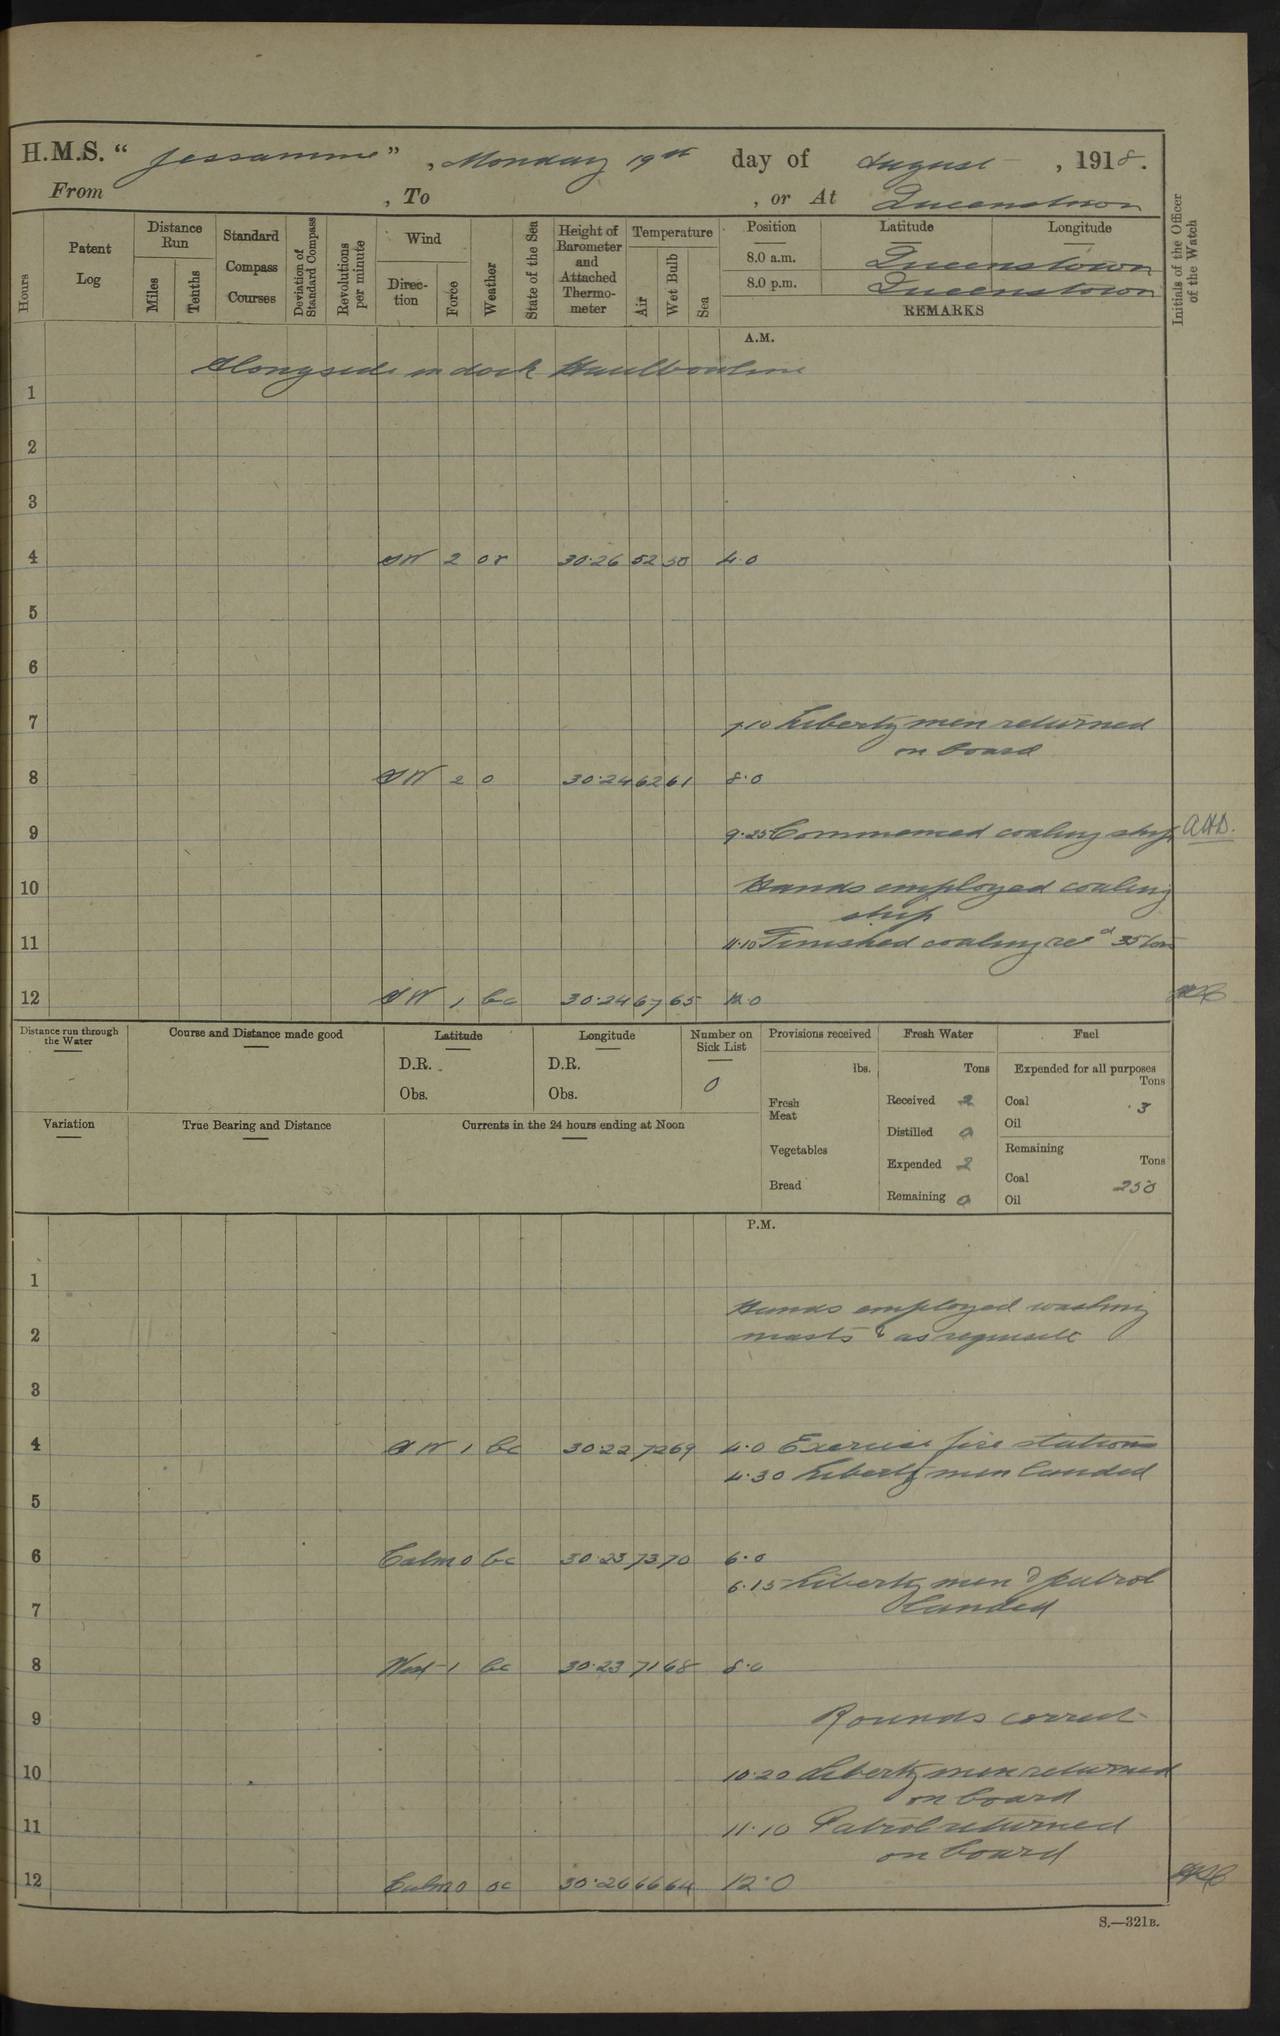 H.M.S. “Jessamine”, Monday 19th day of August, 1918.
From , To , or At Queenstown
Hours
Patent Log
Distance Run
Miles
Tenths
Standard Compass Courses
Deviation of Standard Compass
Revolutions per minute
Wind
Direction
Force
Weather
State of the Sea
Height of Barometer and Attached Thermometer
Temperature
Air
Wet Bulb
Sea
Position Latitude Longitude
8.0 a.m. Queenstown
8.0 p.m. Queenstown
REMARKS
Initials of the Officer of the Watch
A.M.
Alongside in dock Haulbowline
1
2
3
4 SW 2 or 30.26 52 50 4.0
5
6
7 7.10 Liberty men returned
on board
8 SW 2 o 30.24 62 61 8.0
9 9.25 Commenced coaling ship AHD.
10 Hands employed coaling
ship
11 11.10 Finished coaling recd 35 tons
12 SW 1 bc 30.24 67 65 12.0
Distance run through the Water
Course and Distance made good
Latitude
D.R.
Obs.
Longitude
D.R.
Obs.
Number on Sick List
0
Provisions received
lbs.
Fresh Meat
Vegetables
Bread
Fresh Water
Tons
Received 2
Distilled 0
Expended 2
Remaining 0
Fuel
Expended for all purposes
Tons
Coal 3
Oil
Remaining
Tons
Coal 250
Oil
Variation
True Bearing and Distance
Currents in the 24 hours ending at Noon
P.M.
1
Hands employed washing
2 masts & as requisite
3
4 SW 1 bc 30.22 72 69 4.0 Exercise fire stations
4.30 Liberty men landed
5
6 Calm 0 bc 30.23 73 70 6.0
6.15 Liberty men & patrol
7 landed
8 West 1 bc 30.23 71 68 8.0
9 Rounds correct
10 10.20 Liberty men returned
on board
11 11.10 Patrol returned
on board
12 Calm 0 oc 30.26 66 64 12.0
S.—321B.